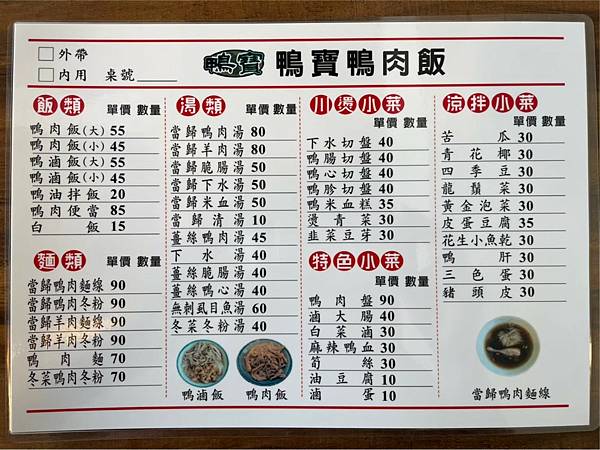 外帶
內用 桌號
鴨寶 鴨寶鴨肉飯
飯類 單價 數量
鴨肉飯(大) 55
鴨肉飯(小) 45
鴨滷飯(大) 55
鴨滷飯(小) 45
鴨油拌飯 20
鴨肉便當 85
白飯 15
麵類 單價 數量
當歸鴨肉麵線 90
當歸鴨肉冬粉 90
當歸羊肉麵線 90
當歸羊肉冬粉 90
鴨肉麵 70
冬菜鴨肉冬粉 70
湯類 單價 數量
當歸鴨肉湯 80
當歸羊肉湯 80
當歸脆腸湯 50
當歸下水湯 50
當歸米血湯 50
當歸清湯 10
薑絲鴨肉湯 45
下水湯 40
薑絲脆腸湯 40
薑絲鴨心湯 40
無刺虱目魚湯 60
冬菜冬粉湯 40
鴨滷飯 鴨肉飯
川燙小菜 單價 數量
下水切盤 40
鴨腸切盤 40
鴨心切盤 40
鴨胗切盤 40
鴨米血糕 35
燙青菜 30
韭菜豆芽 30
特色小菜 單價 數量
鴨肉盤 90
滷大腸 40
白菜滷 30
麻辣鴨血 30
筍絲 30
油豆腐 10
滷蛋 10
涼拌小菜 單價 數量
苦瓜 30
青花椰 30
四季豆 30
龍鬚菜 30
黃金泡菜 30
皮蛋豆腐 35
花生小魚乾 30
鴨肝 30
三色蛋 30
豬頭皮 30
當歸鴨肉麵線